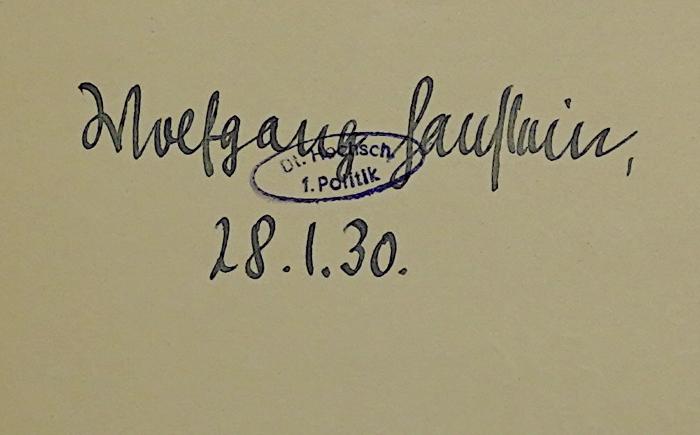 Wolfgang
Dt. Hochsch.
f. Politik
28.1.30.